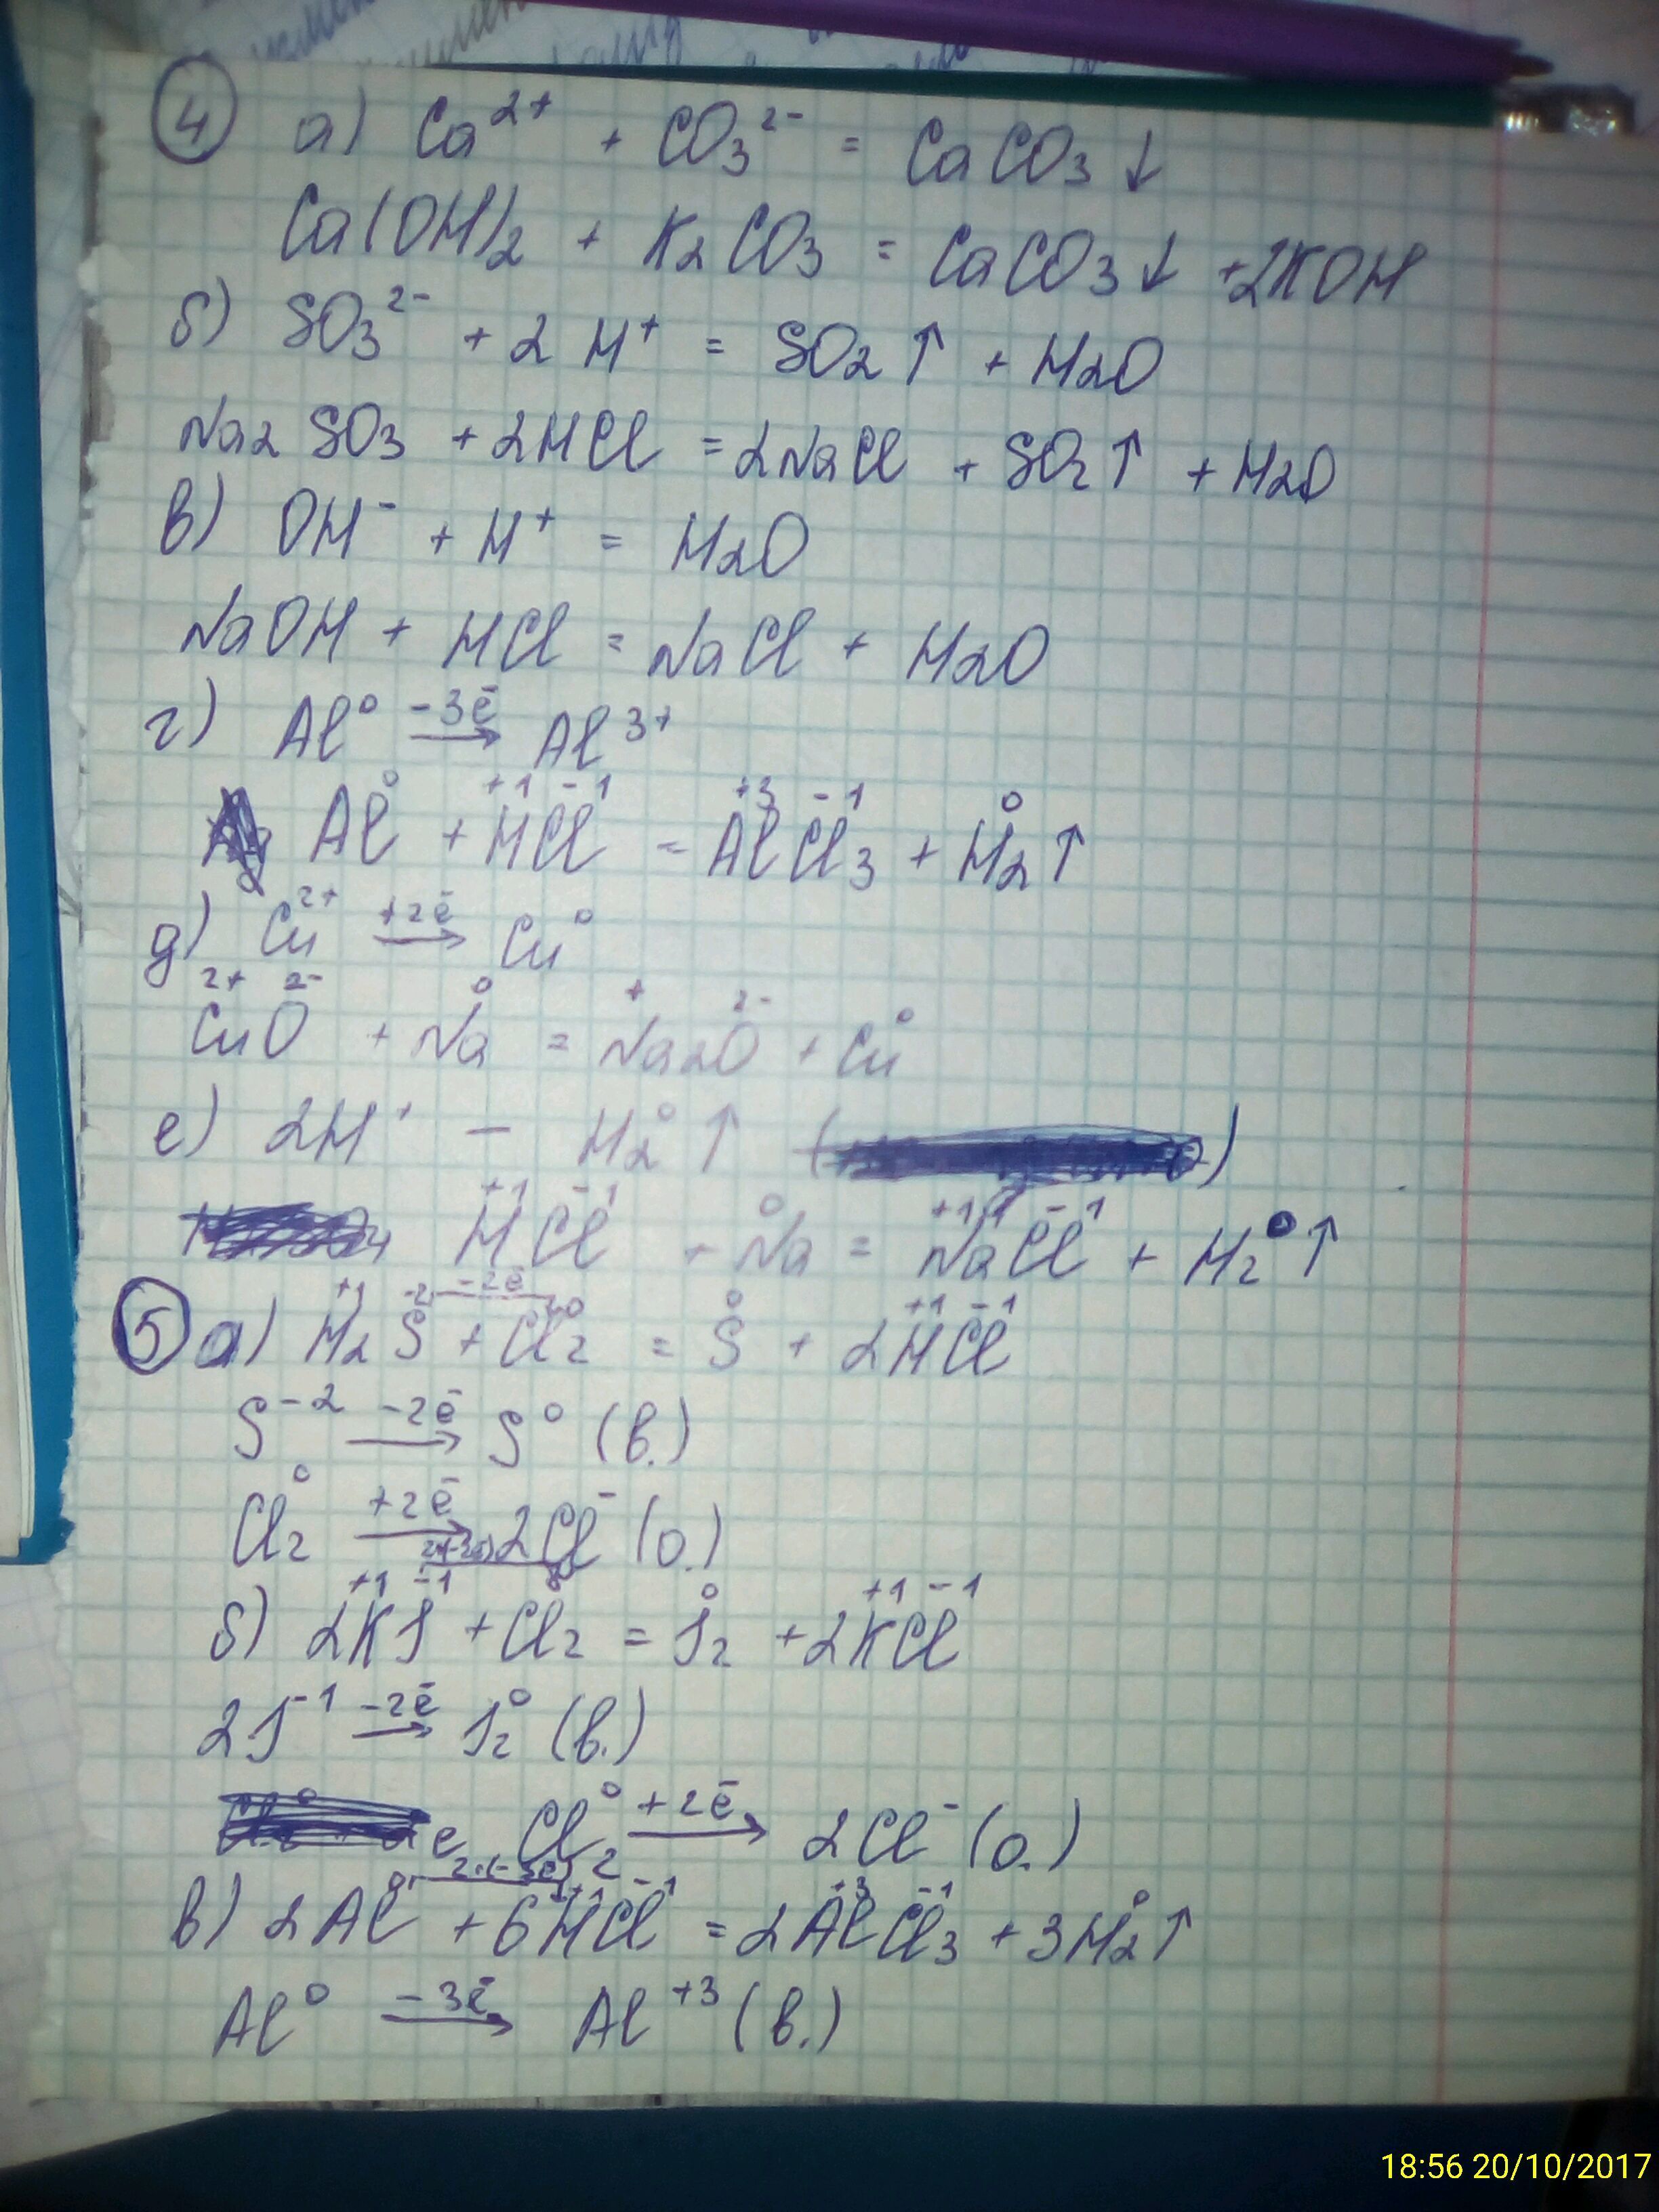 4 а) Ca²⁺ + CO₃²⁻ = CaCO₃↓
Ca(OH)₂ + K₂CO₃ = CaCO₃↓ + 2KOH
б) SO₃²⁻ + 2H⁺ = SO₂↑ + H₂O
Na₂SO₃ + 2HCl = 2NaCl + SO₂↑ + H₂O
в) OH⁻ + H⁺ = H₂O
NaOH + HCl = NaCl + H₂O
г) Al⁰ –3ē→ Al³⁺
Al⁰ + H⁺¹Cl⁻¹ = Al⁺³Cl₃⁻¹ + H₂⁰↑
д) Cu²⁺ +2ē→ Cu⁰
Cu²⁺O²⁻ + Na⁰ = Na₂⁺O²⁻ + Cu⁰
е) 2H⁺ – H₂⁰↑
H⁺¹Cl⁻¹ + Na⁰ = Na⁺¹Cl⁻¹ + H₂⁰↑
5 а) H₂⁺¹S⁻² + Cl₂⁰ = S⁰ + 2H⁺¹Cl⁻¹
–2ē
S⁻² –2ē→ S⁰ (в.)
Cl₂⁰ +2ē→ 2Cl⁻ (о.)
б) 2K⁺¹J⁻¹ + Cl₂⁰ = J₂⁰ + 2K⁺¹Cl⁻¹
2J⁻¹ –2ē→ J₂⁰ (в.)
Cl₂⁰ +2ē→ 2Cl⁻ (о.)
2·(–3ē)
в) 2Al⁰ + 6H⁺¹Cl⁻¹ = 2Al⁺³Cl₃⁻¹ + 3H₂⁰↑
Al⁰ –3ē→ Al⁺³ (в.)
18:56 20/10/2017